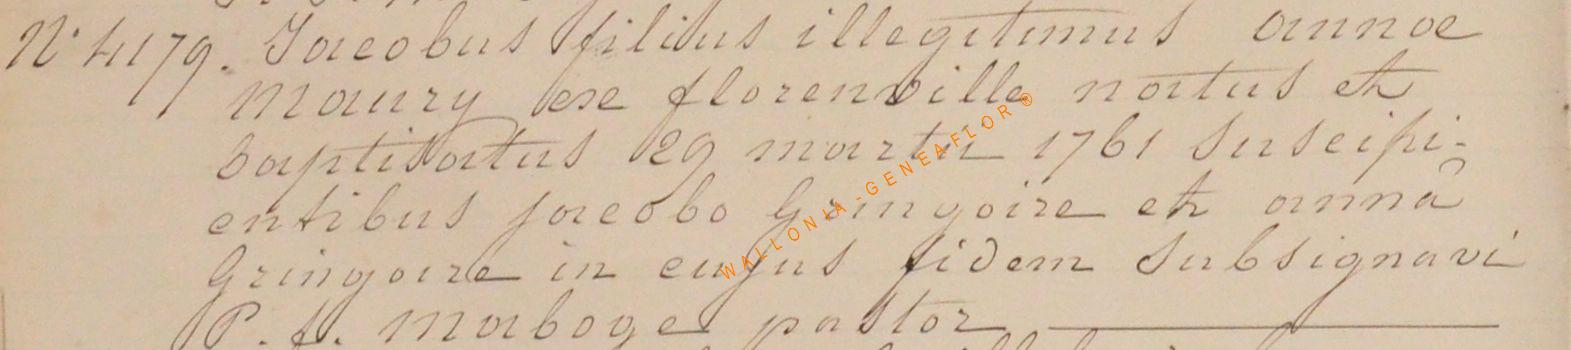 N° 4179. Jacobus filius illegitimus annae
Maury ex florenville natus et
baptisatus 29 martii 1761 Suscipi-
entibus jacobo Gringoire et annâ
Gringoire in cujus fidem Subsignavi
P. f. Maboge pastor
WALLONIA-GENEAFLOR®